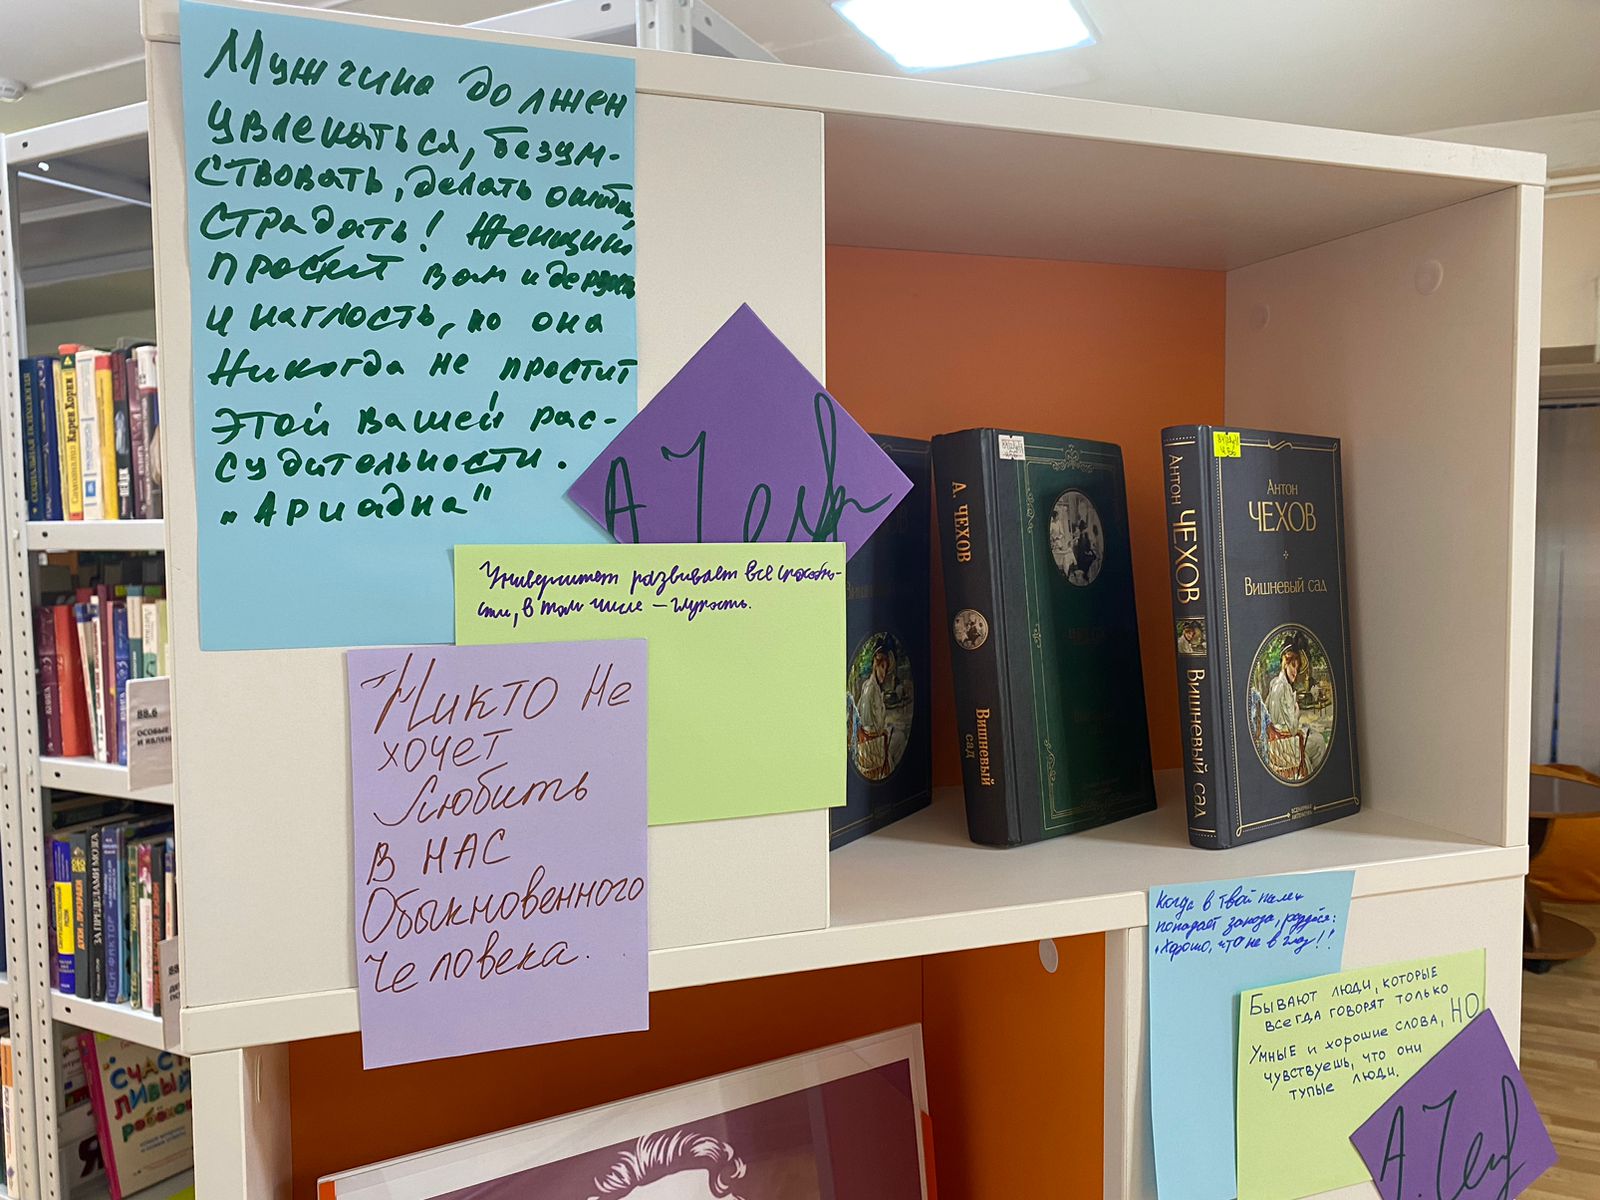 Мужчина должен
увлекаться, безум-
ствовать, делать ошибки,
страдать! Женщина
простит вам и дерзость
и наглость, но она
никогда не простит
этой вашей рас-
судительности.
„Ариадна"
А. Чехов
Университет развивает все способно-
сти, в том числе – глупость.
Никто не
хочет
любить
в нас
Обыкновенного
человека.
А. ЧЕХОВ
Вишневый
сад
Антон ЧЕХОВ Вишневый сад
Антон
ЧЕХОВ
Вишневый сад
Когда в твой палец
попадает заноза, радуйся:
„Хорошо, что не в глаз!"
Бывают люди, которые
всегда говорят только
умные и хорошие слова, НО
чувствуешь, что они
тупые люди.
А. Чехов
СОЦИАЛЬНАЯ ПСИХОЛОГИЯ
Самоанализ Карен Хорни
88.6
ОСОБЫЕ
И ЯВЛЕН
ЗА ПРЕДЕЛАМИ МОЗГА
ПСИ-ФАКТОР
СЧАСТ
ЛИВЫЙ
ребёнок